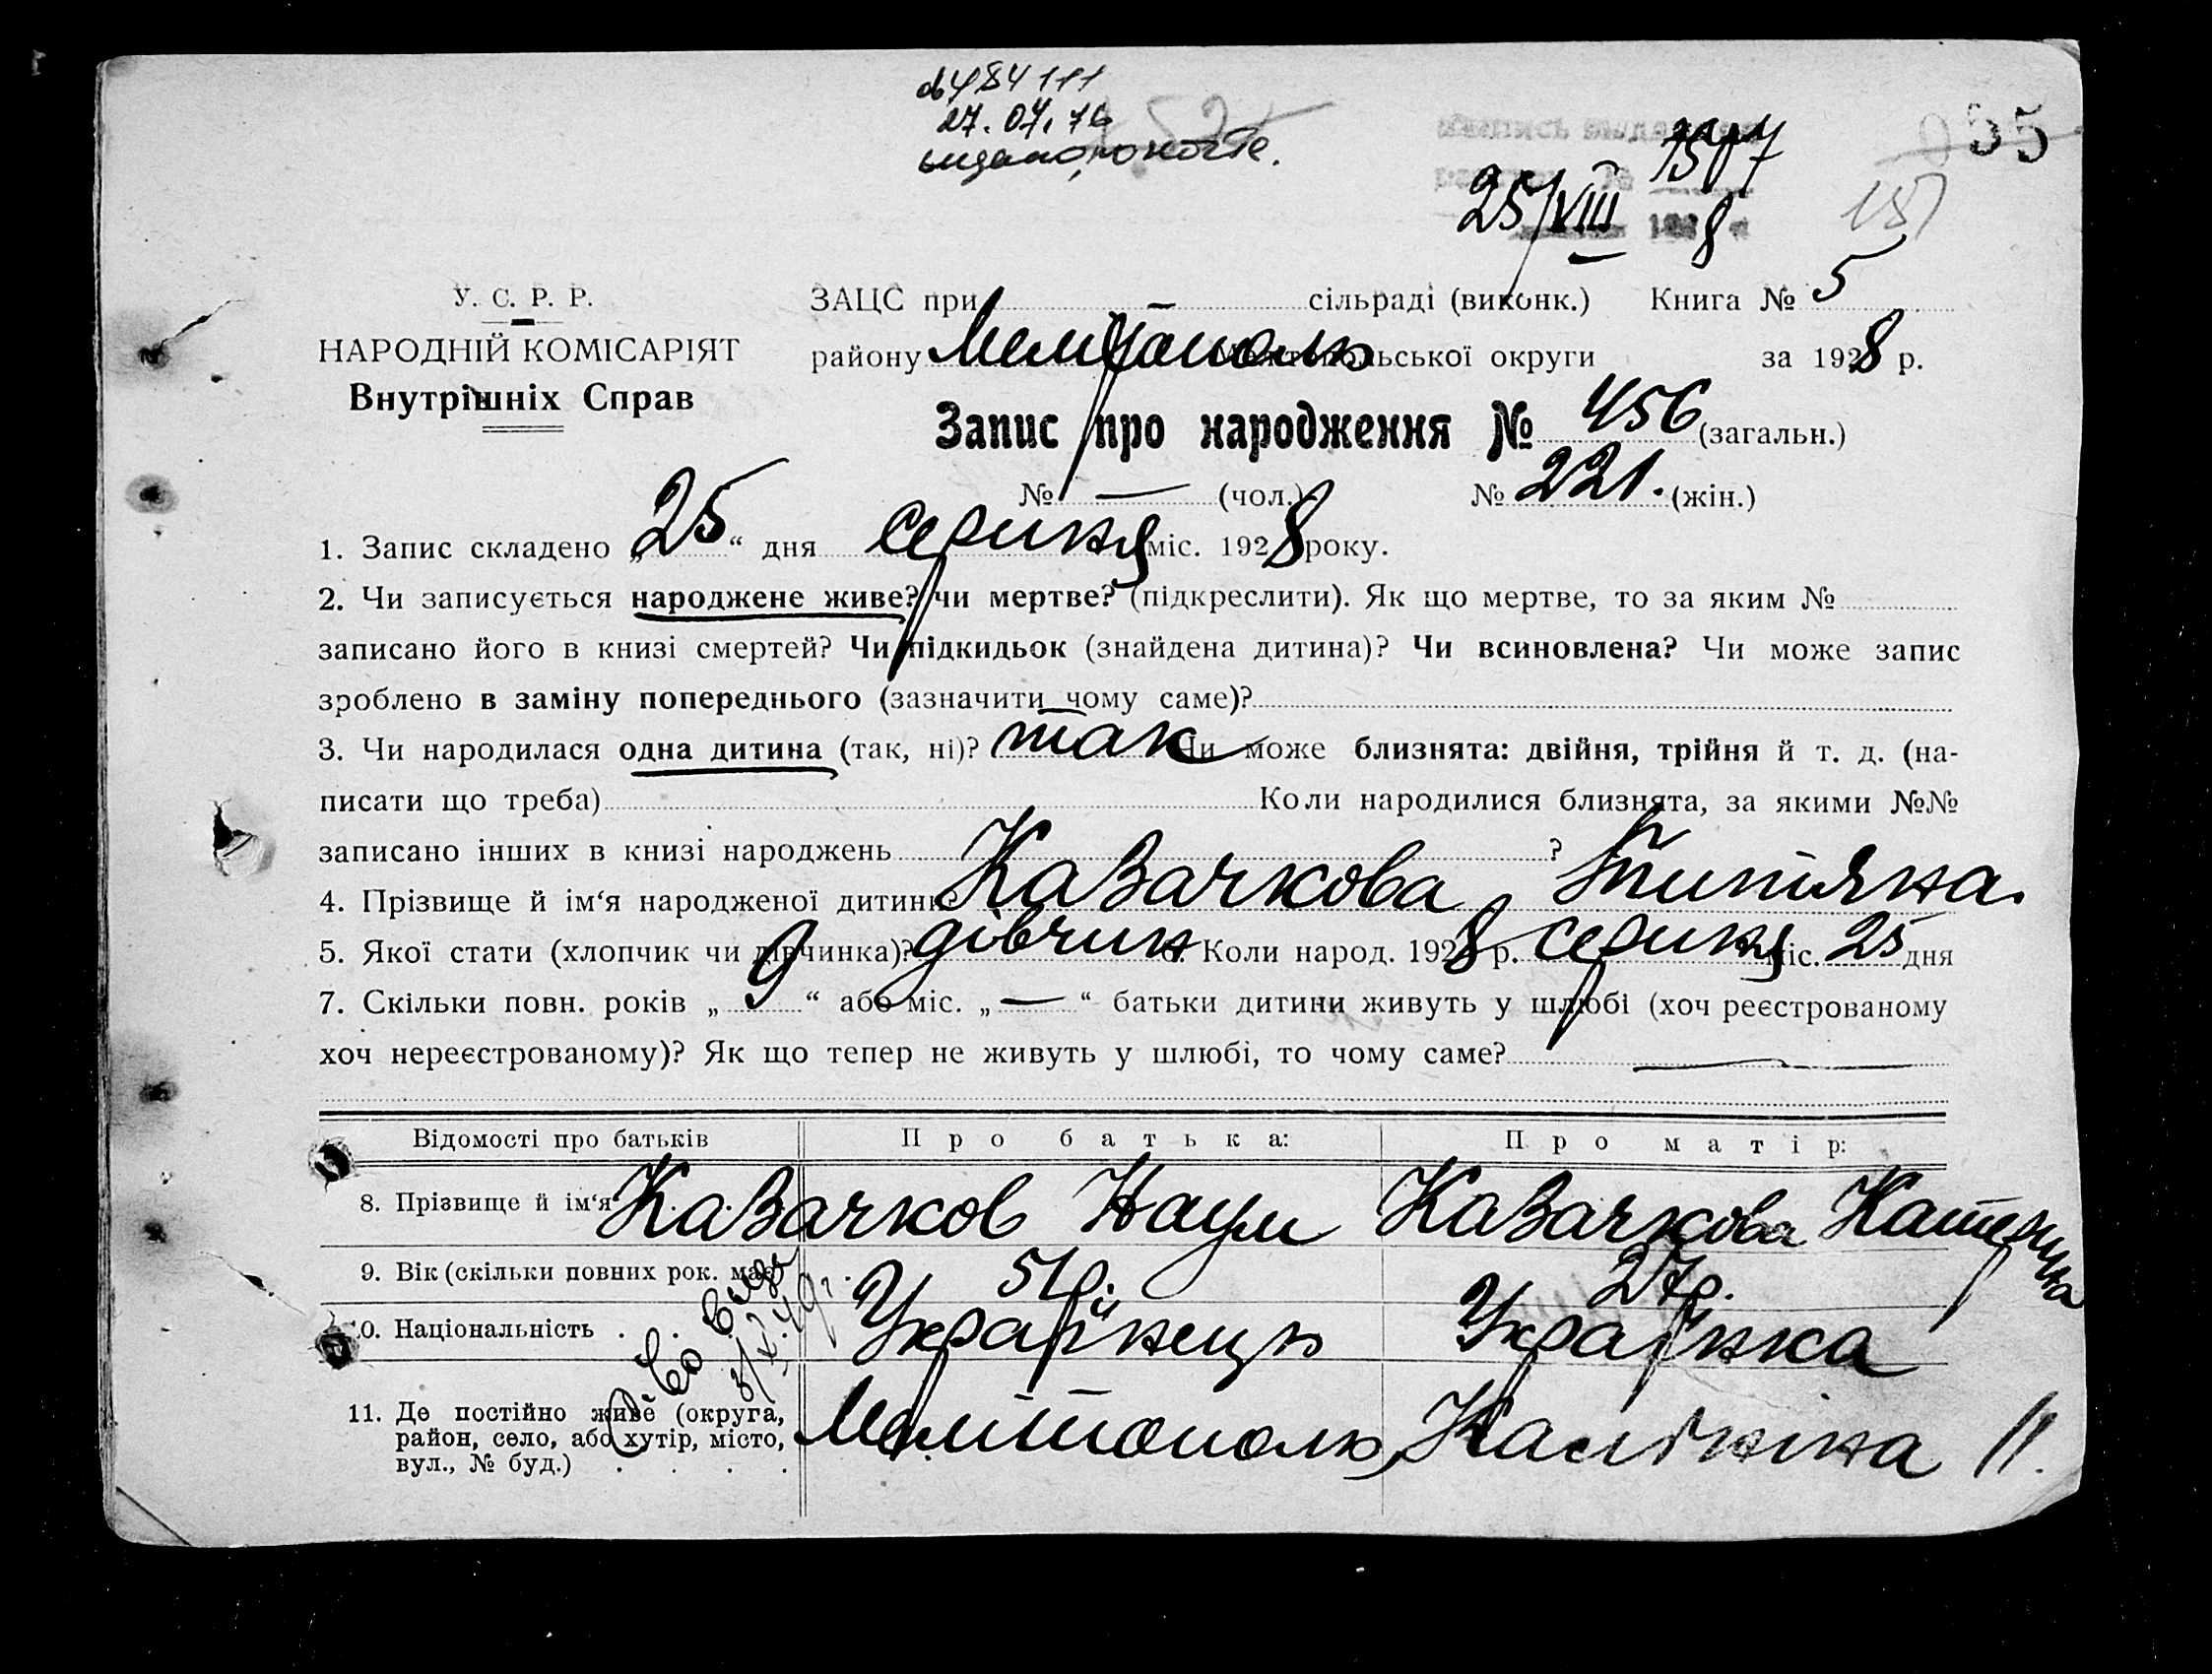 27.04.76
видано, почте.
1577
055
25/VIII 1928
157
У. С. Р. Р.
НАРОДНІЙ КОМІСАРІЯТ
Внутрішніх Справ
ЗАЦС при — сільраді (виконк.) Книга № 5
району Мелітополь Мелітопольської округи за 1928 р.
Запис про народження № 456 (загальн.)
№ — (чол.) № 221. (жін.)
1. Запис складено „25“ дня серпня міс. 1928 року.
2. Чи записується народжене живе? чи мертве? (підкреслити). Як що мертве, то за яким №
записано його в книзі смертей? Чи підкидьок (знайдена дитина)? Чи всиновлена? Чи може запис
зроблено в заміну попереднього (зазначити чому саме)?
3. Чи народилася одна дитина (так, ні)? так Чи може близнята: двійня, трійня й т. д. (на-
писати що треба) Коли народилися близнята, за якими №№
записано інших в книзі народжень ?
4. Прізвище й ім‘я народженої дитини Казачкова
5. Якої стати (хлопчик чи дівчинка)? дівчин 6. Коли народ. 1928 р. серпня міс. 25 дня
7. Скільки повн. років „9“ або міс. „—“ батьки дитини живуть у шлюбі (хоч реєстрованому
хоч нереєстрованому)? Як що тепер не живуть у шлюбі, то чому саме? —
Відомості про батьків Про батька: Про матір:
8. Прізвище й ім‘я Казачков Наум Казачкова Катерина
9. Вік (скільки повних рок. має) 51р. 27р.
10. Національність . . Українець Українка
11. Де постійно живе (округа,
район, село, або хутір, місто,
вул., № буд.) . . . . Мелітополь, Калініна 11.